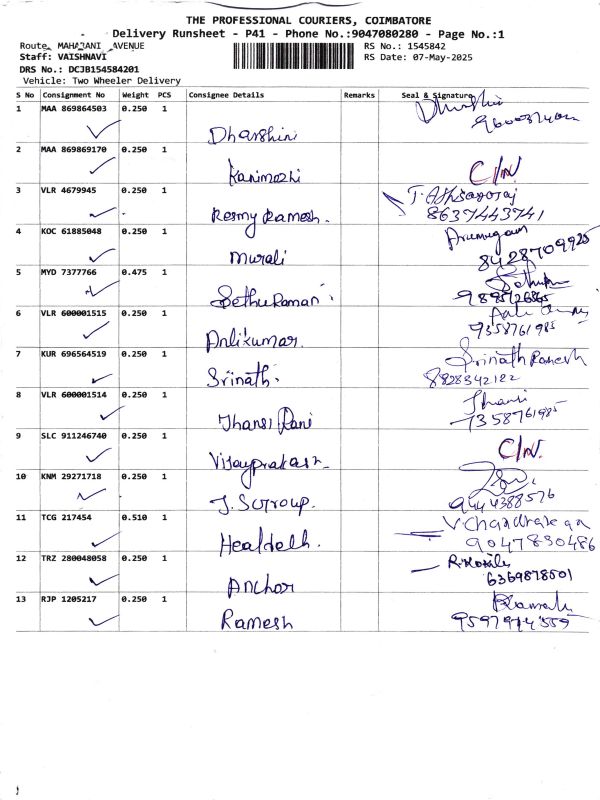 THE PROFESSIONAL COURIERS, COIMBATORE
Delivery Runsheet - P41 - Phone No.:9047080280 - Page No.:1
Route. MAHARANI AVENUE
RS No.: 1545842
Staff: VAISHNAVI
RS Date: 07-May-2025
DRS No.: DCJB154584201
Vehicle: Two Wheeler Delivery
S No Consignment No Weight PCS Consignee Details Remarks Seal & Signature
1 MAA 869864503 0.250 1
Dharshini
2 MAA 869869170 0.250 1
Kanimozhi C/N
3 VLR 4679945 0.250 1
Resmy Ramesh. 8637443741
4 KOC 61885048 0.250 1 Arumugam
Murali 8428709925
5 MYD 7377766 0.475 1
Sethuraman
6 VLR 600001515 0.250 1
Anlikumar 7358761985
7 KUR 696564519 0.250 1 Srinath Ramesh
Srinath. 8828342122
8 VLR 600001514 0.250 1 Jhansi
Jhansi Rani 7358761985
9 SLC 911246740 0.250 1 C/N.
Vijayprakash
10 KNM 29271718 0.250 1
J.S Group. 9444388576
11 TCG 217454 0.510 1
9047830486
12 TRZ 280048058 0.250 1
Anchor 6369878501
13 RJP 1205217 0.250 1
Ramesh 9597914559